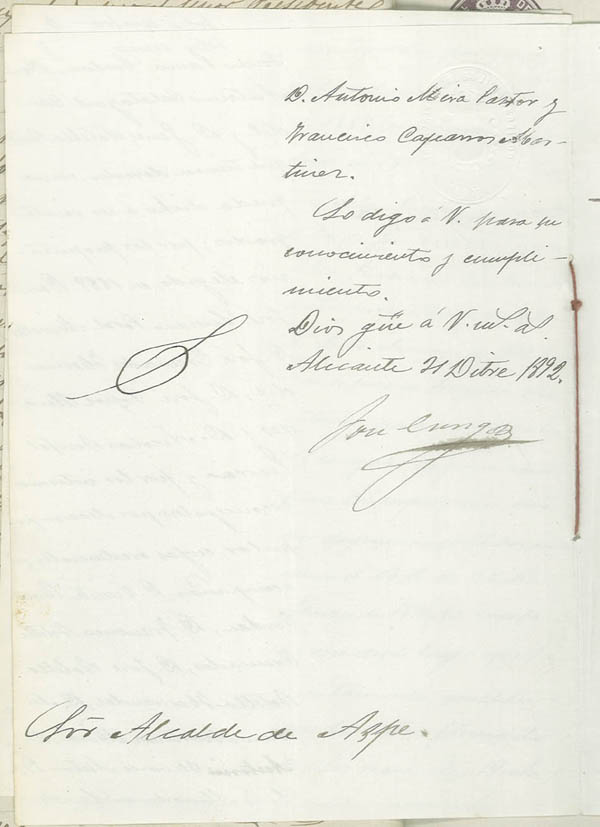 D. Antonio Mira Pastor y
Francisco Caparros Mar-
tinez.
Lo digo á V. para su
conocimiento y cumpli-
miento.
Dios gūe á V. ms. as.
Alicante 21 Dbre 1892.
José
Sor Alcalde de Aspe.